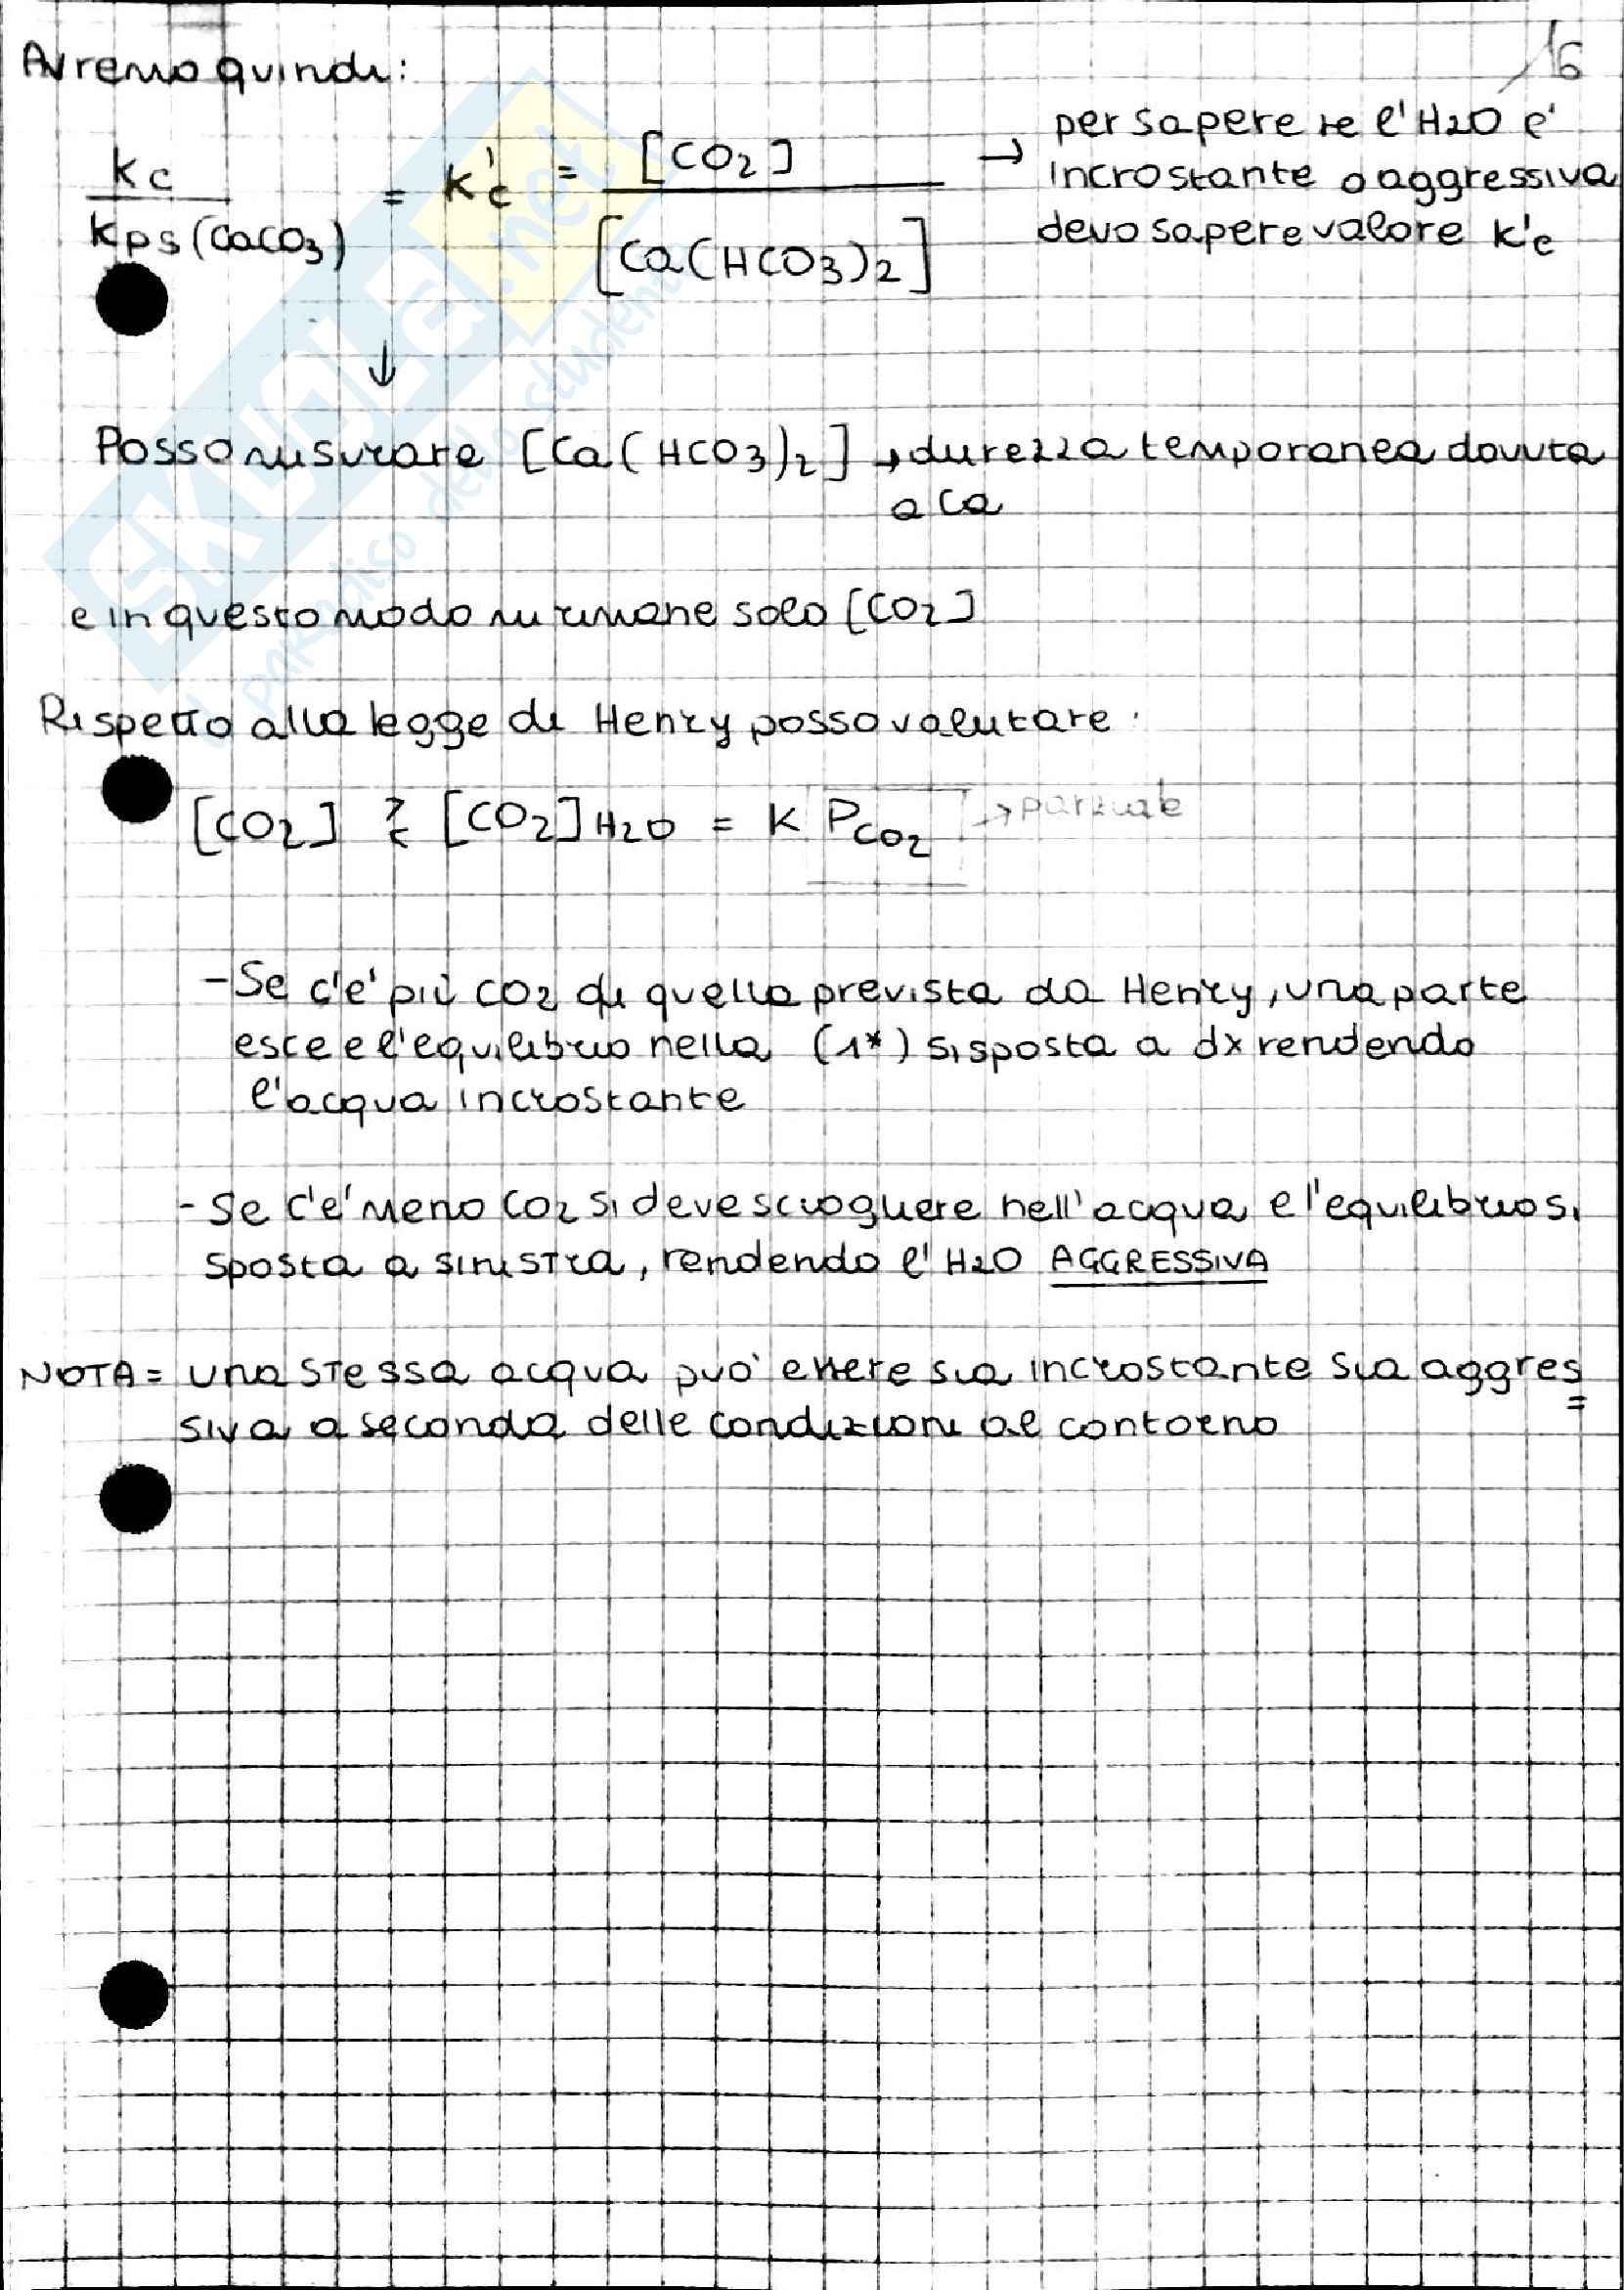 16
Avremo quindi:
Kc / Kps(CaCO3) = K'c = [CO2] / [Ca(HCO3)2] → per sapere se l'H2O e'
incrostante o aggressiva
devo sapere valore K'c
↓
Posso misurare [Ca(HCO3)2] → durezza temporanea dovuta
a Ca
e in questo modo mi rimane solo [CO2]
Rispetto alla legge di Henry posso valutare:
[CO2] [CO2]H2O = K PCO2 → parziale
- Se c'e' più CO2 di quella prevista da Henry, una parte
esce e l'equilibrio nella (1*) si sposta a dx rendendo
l'acqua incrostante
- Se c'e' meno CO2 si deve sciogliere nell'acqua e l'equilibrio si
sposta a sinistra, rendendo l'H2O AGGRESSIVA
NOTA = una stessa acqua puo' essere sia incrostante sia aggres=
siva a seconda delle condizioni al contorno
SKUOLA.net
il paradiso dello studente